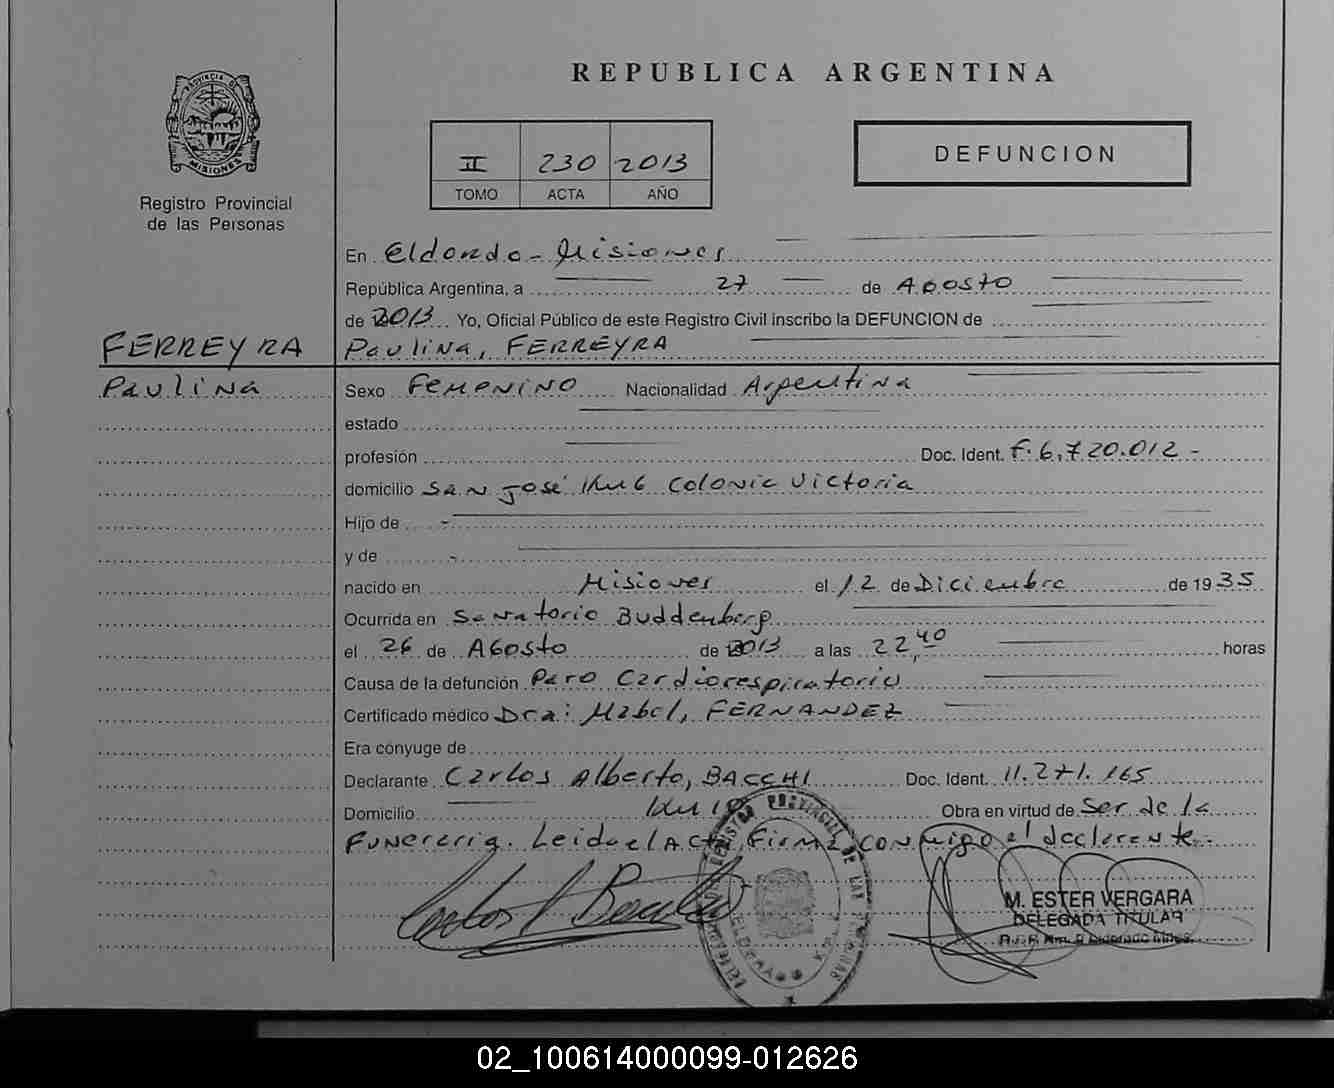 PROVINCIA DE
MISIONES
Registro Provincial
de las Personas
REPUBLICA ARGENTINA
II 230 2013
TOMO ACTA AÑO
DEFUNCION
En Eldorado - Misiones
República Argentina, a 27 de AGOSTO
de 2013 Yo, Oficial Público de este Registro Civil inscribo la DEFUNCION de
FERREYRA
Paulina, FERREYRA
Paulina
Sexo Femenino Nacionalidad Argentina
estado
profesión Doc. Ident. F. 6.720.012 -
domicilio San José Km 6 Colonia Victoria
Hijo de -
y de -
nacido en Misiones el 12 de Diciembre de 1935
Ocurrida en Sanatorio Buddenberg
el 26 de AGosto de 2013 a las 22,40 horas
Causa de la defunción Paro Cardiorespiratorio
Certificado médico Dra: Mabel, FERNANDEZ
Era cónyuge de
Declarante Carlos Alberto, BACCHI Doc. Ident. 11.271.165
Domicilio Km 10 Obra en virtud de Ser de la
Funeraria. Leida el Acta Firma conmigo el declarente.-
REGISTRO PROVINCIAL DE LAS PERSONAS
ELDORADO
M. ESTER VERGARA
DELEGADA TITULAR
02_100614000099-012626